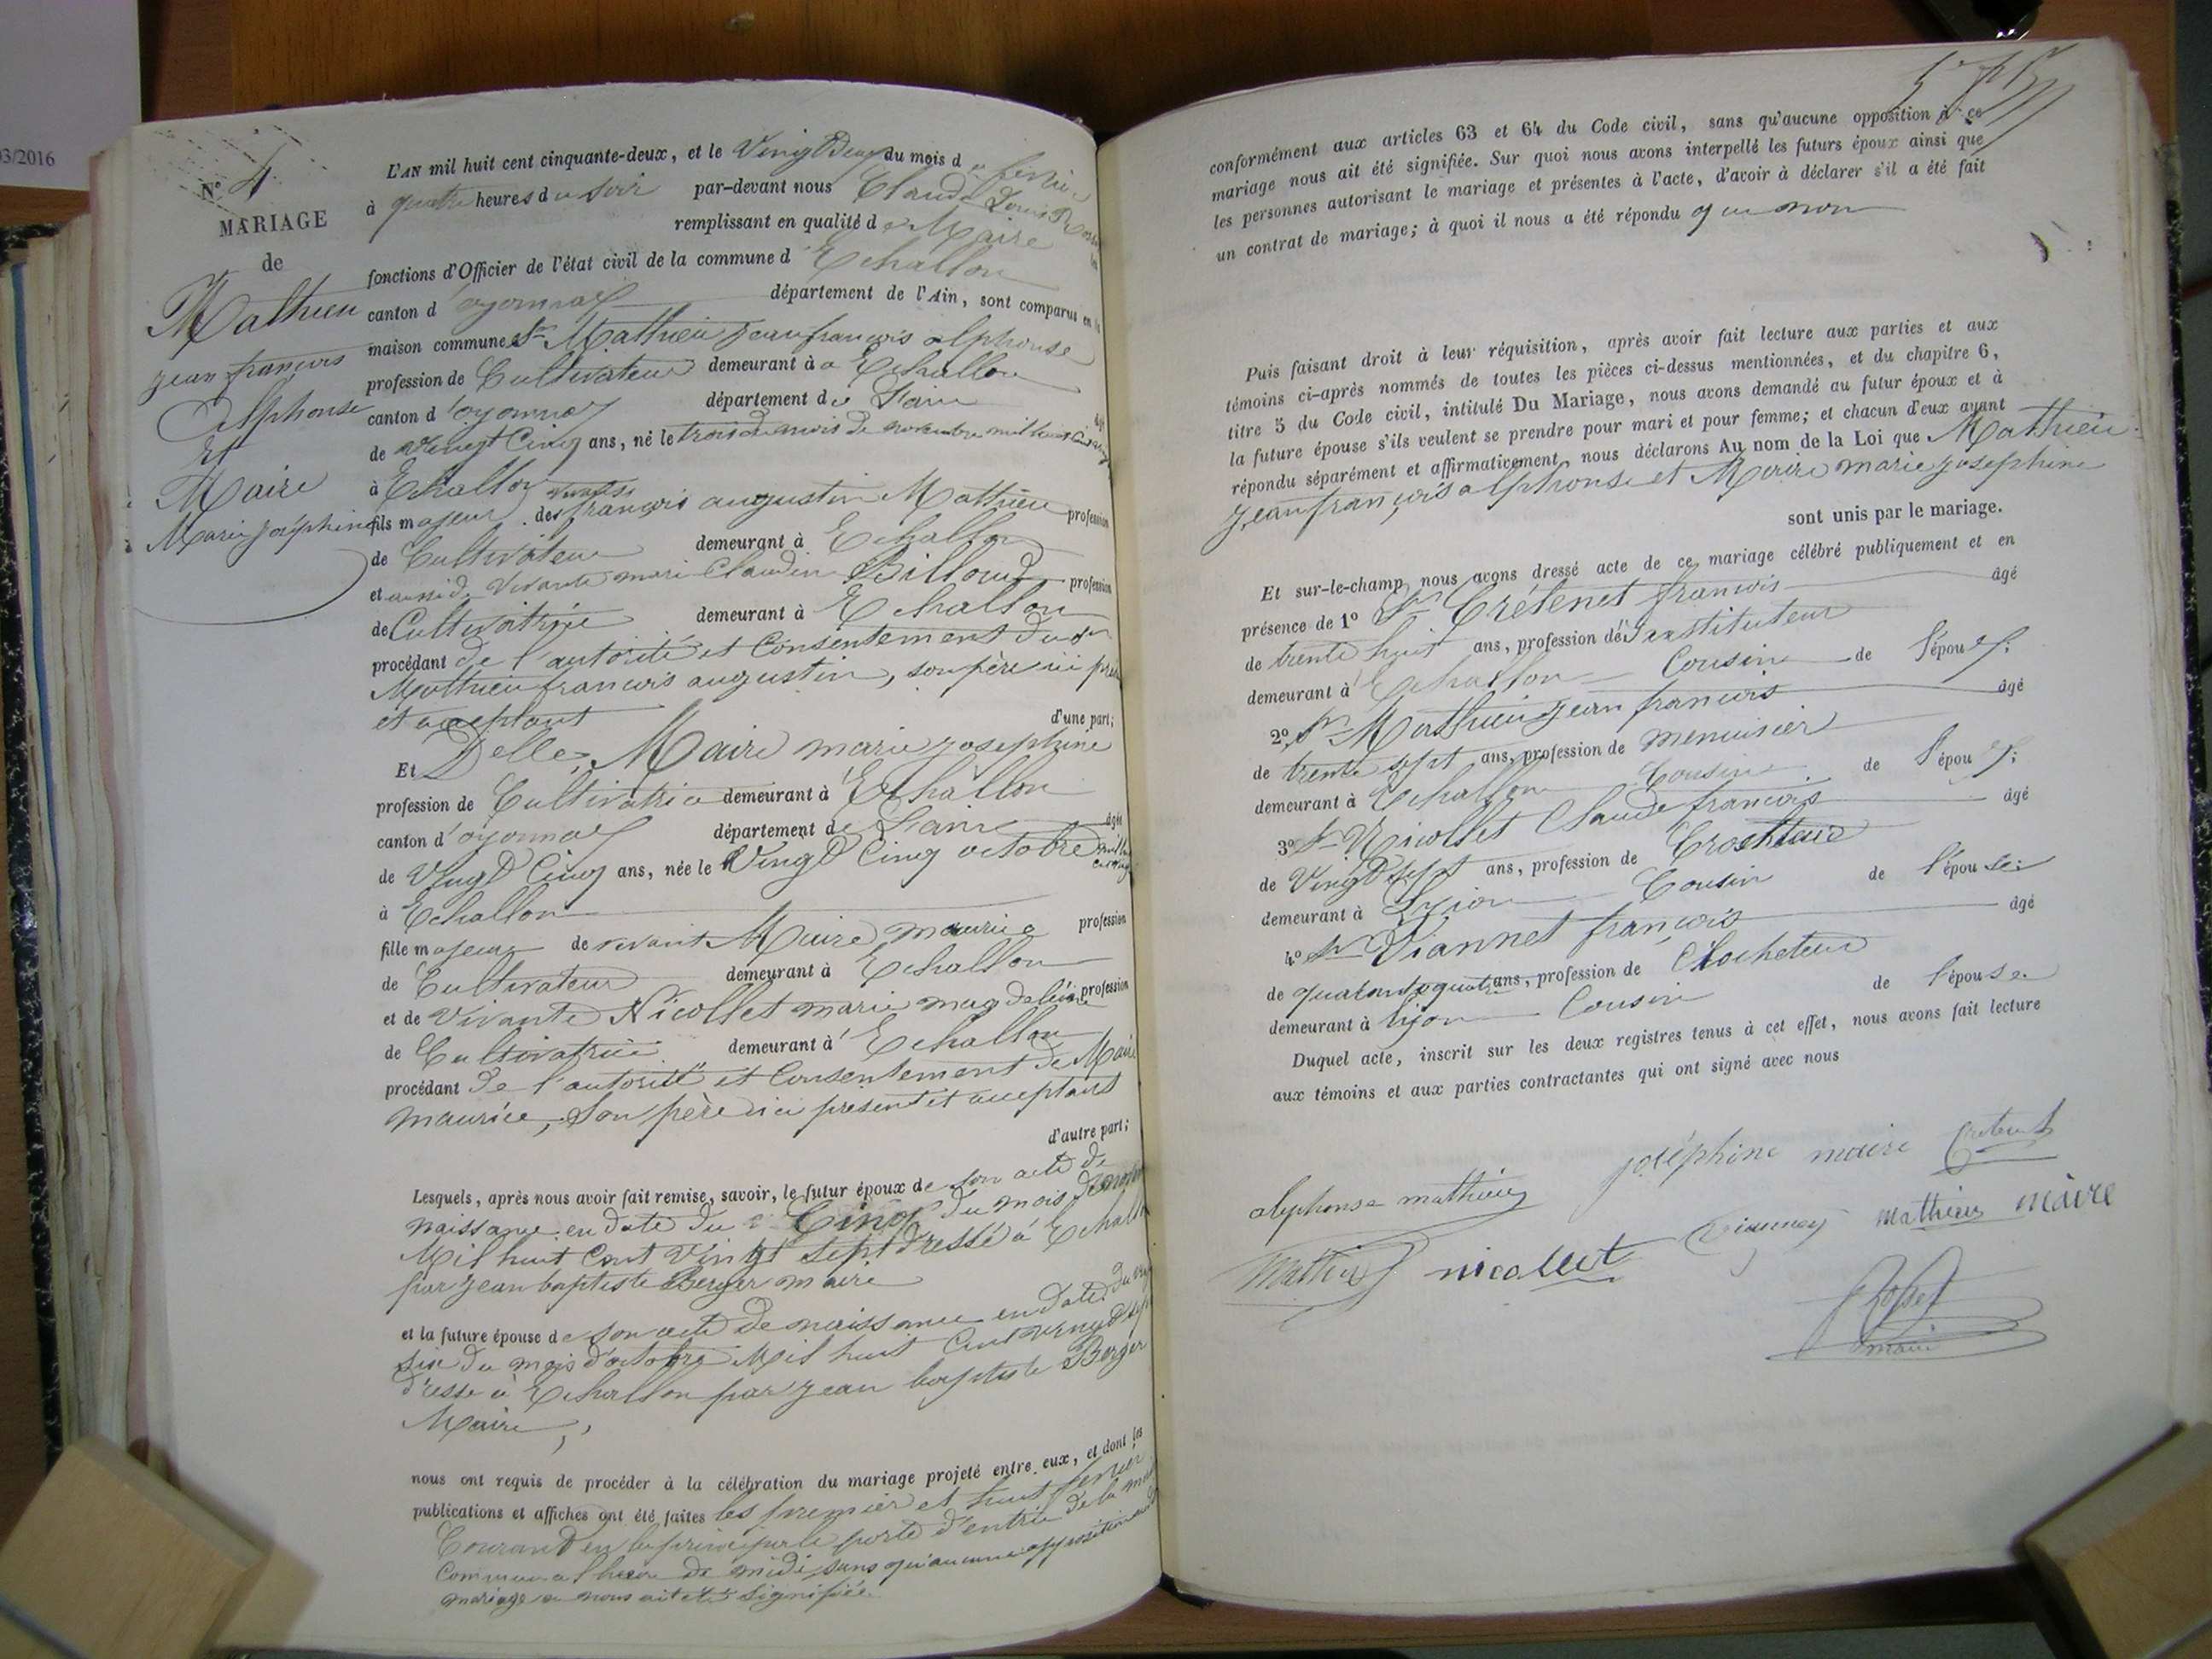 03/2016
N° 4
MARIAGE
de
Mathieu
jean françois
Alphonse
Et
Maire
Marie joséphine
L'AN mil huit cent cinquante-deux, et le Vingt Deux du mois de
à quatre heures du soir par-devant nous Claude Louis
remplissant en qualité de Maire
fonctions d'Officier de l'état civil de la commune d'Echallon
canton d'oyonnax département de l'Ain, sont comparus en la
maison commune Sr Mathieu jean françois alphonse
profession de Cultivateur demeurant à a Echallon
canton d'oyonnax département de l'ain
de vingt Cinq ans, né le trois du mois de novembre mil huit
à Echallon
fils majeur des vivants françois augustin Mathieu profession
de Cultivateur demeurant à Echallon
et aussi de vivante marie Claudine Billoud profession
de Cultivatrice demeurant à Echallon
procédant de l'autorité et Consentement dudit
Mathieu francois augustin, son père ici
et acceptant d'une part;
Et Delle, Maire marie josephine
profession de Cultivatrice demeurant à Echallon
canton d'oyonnax département de l'ain âgée
de Vingt Cinq ans, née le Vingt Cinq octobre
à Echallon
fille majeure de vivant Maire maurice profession
de Cultivateur demeurant à Echallon
et de Vivante Nicollet marie magdeleine profession
de Cultivatrice demeurant à Echallon
procédant de l'autorité et Consentement de Maire
maurice, son père ici présent et acceptant
d'autre part;
Lesquels, après nous avoir fait remise, savoir, le futur époux de son acte de
naissance en date du Cinq du mois de
Mil huit Cent Vingt sept dressé à Echallon
par jean baptiste Berger maire
et la future épouse de son acte de naissance en date du
six du mois d'octobre Mil huit Cent vingt sept
dressé à Echallon par jean baptiste Berger
Maire,
nous ont requis de procéder à la célébration du mariage projeté entre eux, et dont les
publications et affiches ont été faites les premier et huit fevrier
Courant en la principale porte d'entrée de la
Commune a l'heure de midi sans qu'aucune opposition
mariage a nous ait été signifiée.
conformément aux articles 63 et 64 du Code civil, sans qu'aucune opposition à ce
mariage nous ait été signifiée. Sur quoi nous avons interpellé les futurs époux ainsi que
les personnes autorisant le mariage et présentes à l'acte, d'avoir à déclarer s'il a été fait
un contrat de mariage; à quoi il nous a été répondu que non
Puis faisant droit à leur réquisition, après avoir fait lecture aux parties et aux
témoins ci-après nommés de toutes les pièces ci-dessus mentionnées, et du chapitre 6,
titre 5 du Code civil, intitulé Du Mariage, nous avons demandé au futur époux et à
la future épouse s'ils veulent se prendre pour mari et pour femme; et chacun d'eux ayant
répondu séparément et affirmativement, nous déclarons Au nom de la Loi que Mathieu
jean françois alphonse et Maire marie josephine
sont unis par le mariage.
Et sur-le-champ nous avons dressé acte de ce mariage célébré publiquement et en
présence de 1° Sr Crétenet françois âgé
de trente huit ans, profession d'Instituteur
demeurant à Echallon Cousin de l'époux.
2° Sr Mathieu jean françois âgé
de trente sept ans, profession de menuisier
demeurant à Echallon Cousin de l'époux.
3° Sr Nicollet Claude françois âgé
de Vingt sept ans, profession de Crocheteur
demeurant à Lyon Cousin de l'épouse.
4° Sr Viannet françois âgé
de quarante quatre ans, profession de Crocheteur
demeurant à lyon Cousin de l'épouse.
Duquel acte, inscrit sur les deux registres tenus à cet effet, nous avons fait lecture
aux témoins et aux parties contractantes qui ont signé avec nous
alephonse mathieu joséphine maire Cretenet
Mathieu nicollet Viannay mathieu maire
Rosset
maire